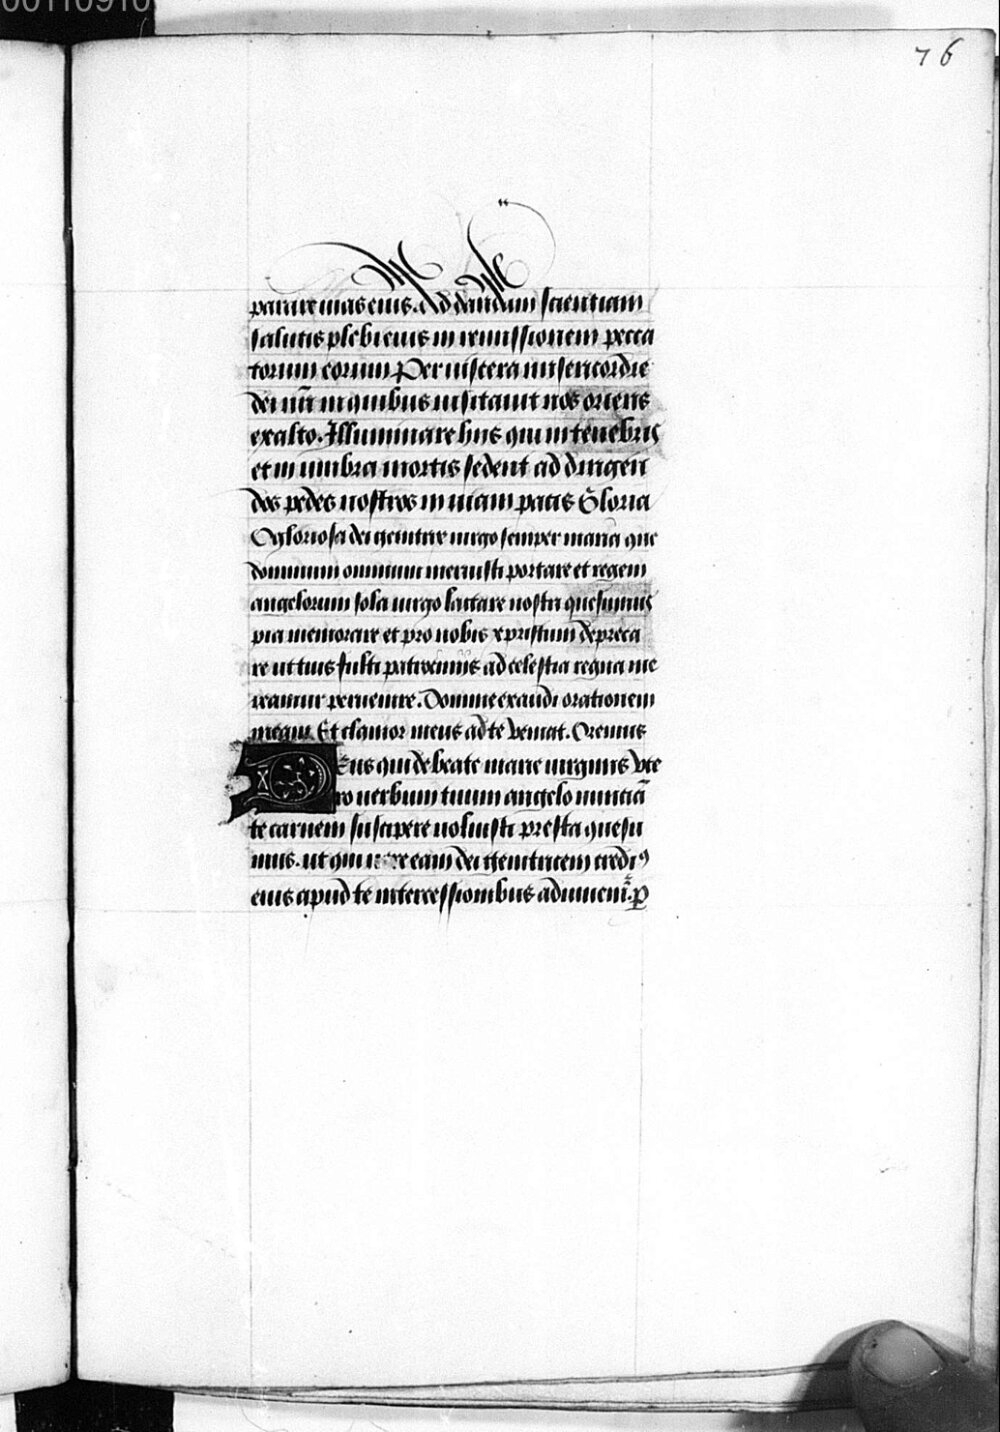 00110910
76
parare uias eius. Ad dandam scientiam
salutis plebi eius in remissionem pecca
torum eorum Per uiscera misericordie
dei nr̄i in quibus uisitauit nos oriens
ex alto. Illuminare hiis qui in tenebris
et in umbra mortis sedent ad dirigen
dos pedes nostros in uiam pacis Gloria
O gloriosa dei genitrix uirgo semper maria que
dominum omnium meruisti portare et regem
angelorum sola uirgo lactare nostri quesumus
pia memorare et pro nobis xpristum depreca
re ut tuis fulti patrociniis ad celestia regna me
reamur peruenire. Domine exaudi orationem
meam Et clamor meus ad te veniat. Oremus
Deus qui de beate marie uirginis vte
ro uerbum tuum angelo nuncia
te carnem suscipere uoluisti presta quesu
mus. ut qui uere eam dei genitricem credi⁹
eius apud te intercessionibus adiuuem̄. P